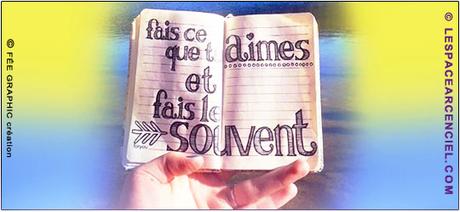 fais ce
que t aimes
et
fais le
souvent
foryou
© FÉE GRAPHIC création
© LESPACEARCENCIEL.COM